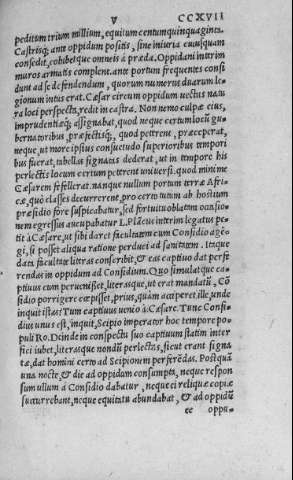 V CCXVII
peditum trium millium, equitum centumquinquaginta.
Castrisq; ante oppidum positis, sine iniuria cuiusquam
consedit, cohibetque omneis à præda. Oppidani interim
muros armatis complent. ante portam frequentes consi
dunt ad se defendendum, quorum numerus duarum le-
gionum intus erat. Cæsar circum oppidum uectus natu
ra loci perspecta, redit in castra. Non nemo culpæ eius,
imprudentiæq; assignabat, quod neque certum locū gu-
bernatoribus, præfectisq;, quod peterent, præceperat,
neque, ut more ipsius consuetudo superioribus tempori
bus fuerat, tabellas signatis dederat, ut in tempore his
perlectis locum certum peterent uniuersi. quod minime
Cæsarem fefellerat. nanque nullum portum terræ Afri-
cæ, quò classes decurrerent, pro certo tutum ab hostium
præsidio fore suspicabatur, sed fortuito oblatam occasio-
nem egressus aucupabatur. L. Plācus interim legatus pe-
tit à Cæsare, ut sibi daret facultatem cum Considio age-
gi, si posset aliqua ratione perduci ad sanitatem. Itaque
data facultate literas conscribit, & eas captiuo dat perfe-
rendas in oppidum ad Considium. Quo simulatque ca-
ptiuus cum peruenisset, literasque, ut erat mandatū, Cō
sidio porrigere cœpisset, prius, quàm acciperet. ille, unde
inquit istas? Tum captiuus uenio à Cæsare. Tunc Consi-
dius unus est, inquit, Scipio imperator hoc tempore po-
puli Ro. Deinde in conspectu suo captiuum statim inter
fici iubet, literasque nondū perlectas, sicut erant signa
tæ, dat homini certo ad Scipionem perferēdas. Postquā
una nocte, & die ad oppidum consumpta, neque respon
sum ullum à Considio dabatur, neque ei reliquæ copiæ
succurrebant, neque equitatu abundabat, & ad oppidū
ee oppu-